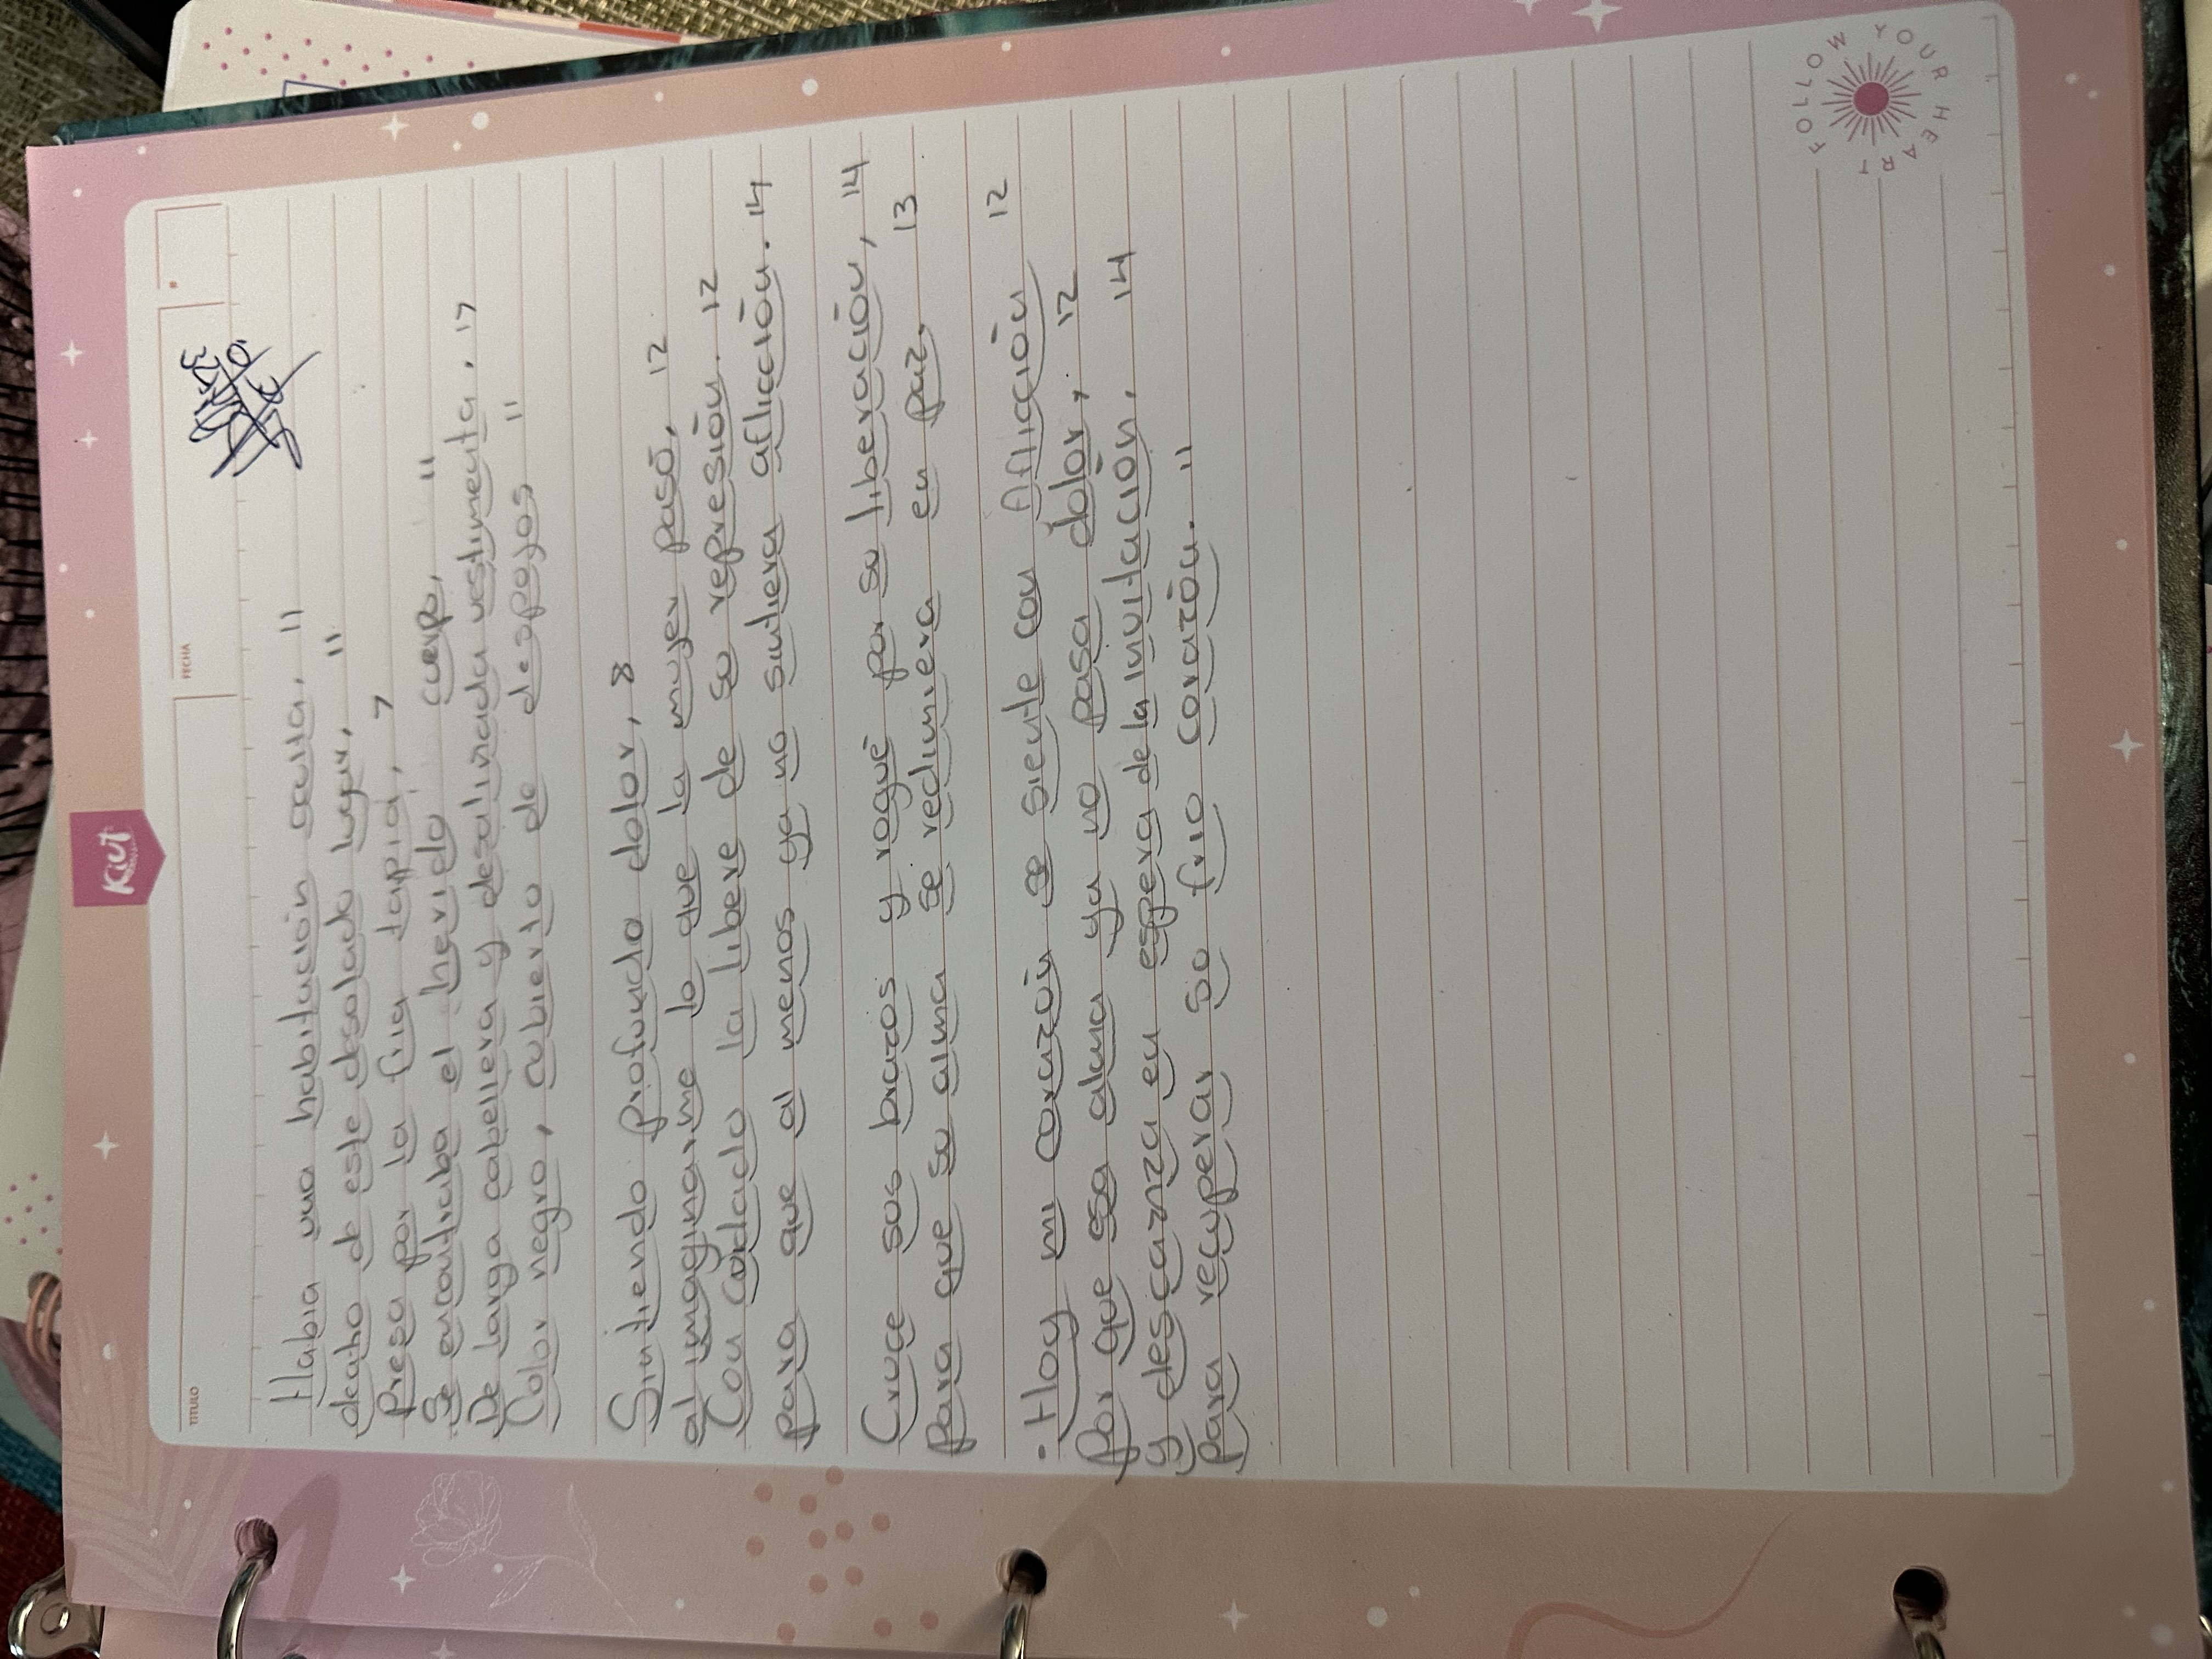 Kiut
TITULO
FECHA
Habia una habitación oculta, 11
deatro de este desolado lugar, 11
Presa por la fria tapia, 7
Se encontraba el herido cuerpo, 11
De larga cabellera y desaliñada vestimenta. 17
Color negro, cubierto de despojos 11
Sintiendo profundo dolor, 8
al imaginarme lo que la mujer pasó, 12
Con cuidado la libere de su represión. 12
para que al menos ya no sintiera aflicción. 14
Cruce sus brazos y rogué por su liberación, 14
Para que su alma se redimiera en paz. 13
· Hoy mi corazón se siente con Aflicción 12
Por que esa alma ya no pasa dolor, 12
y descanza en espera de la invitación. 14
Para recuperar su frio corazón. 11
FOLLOW YOUR HEART